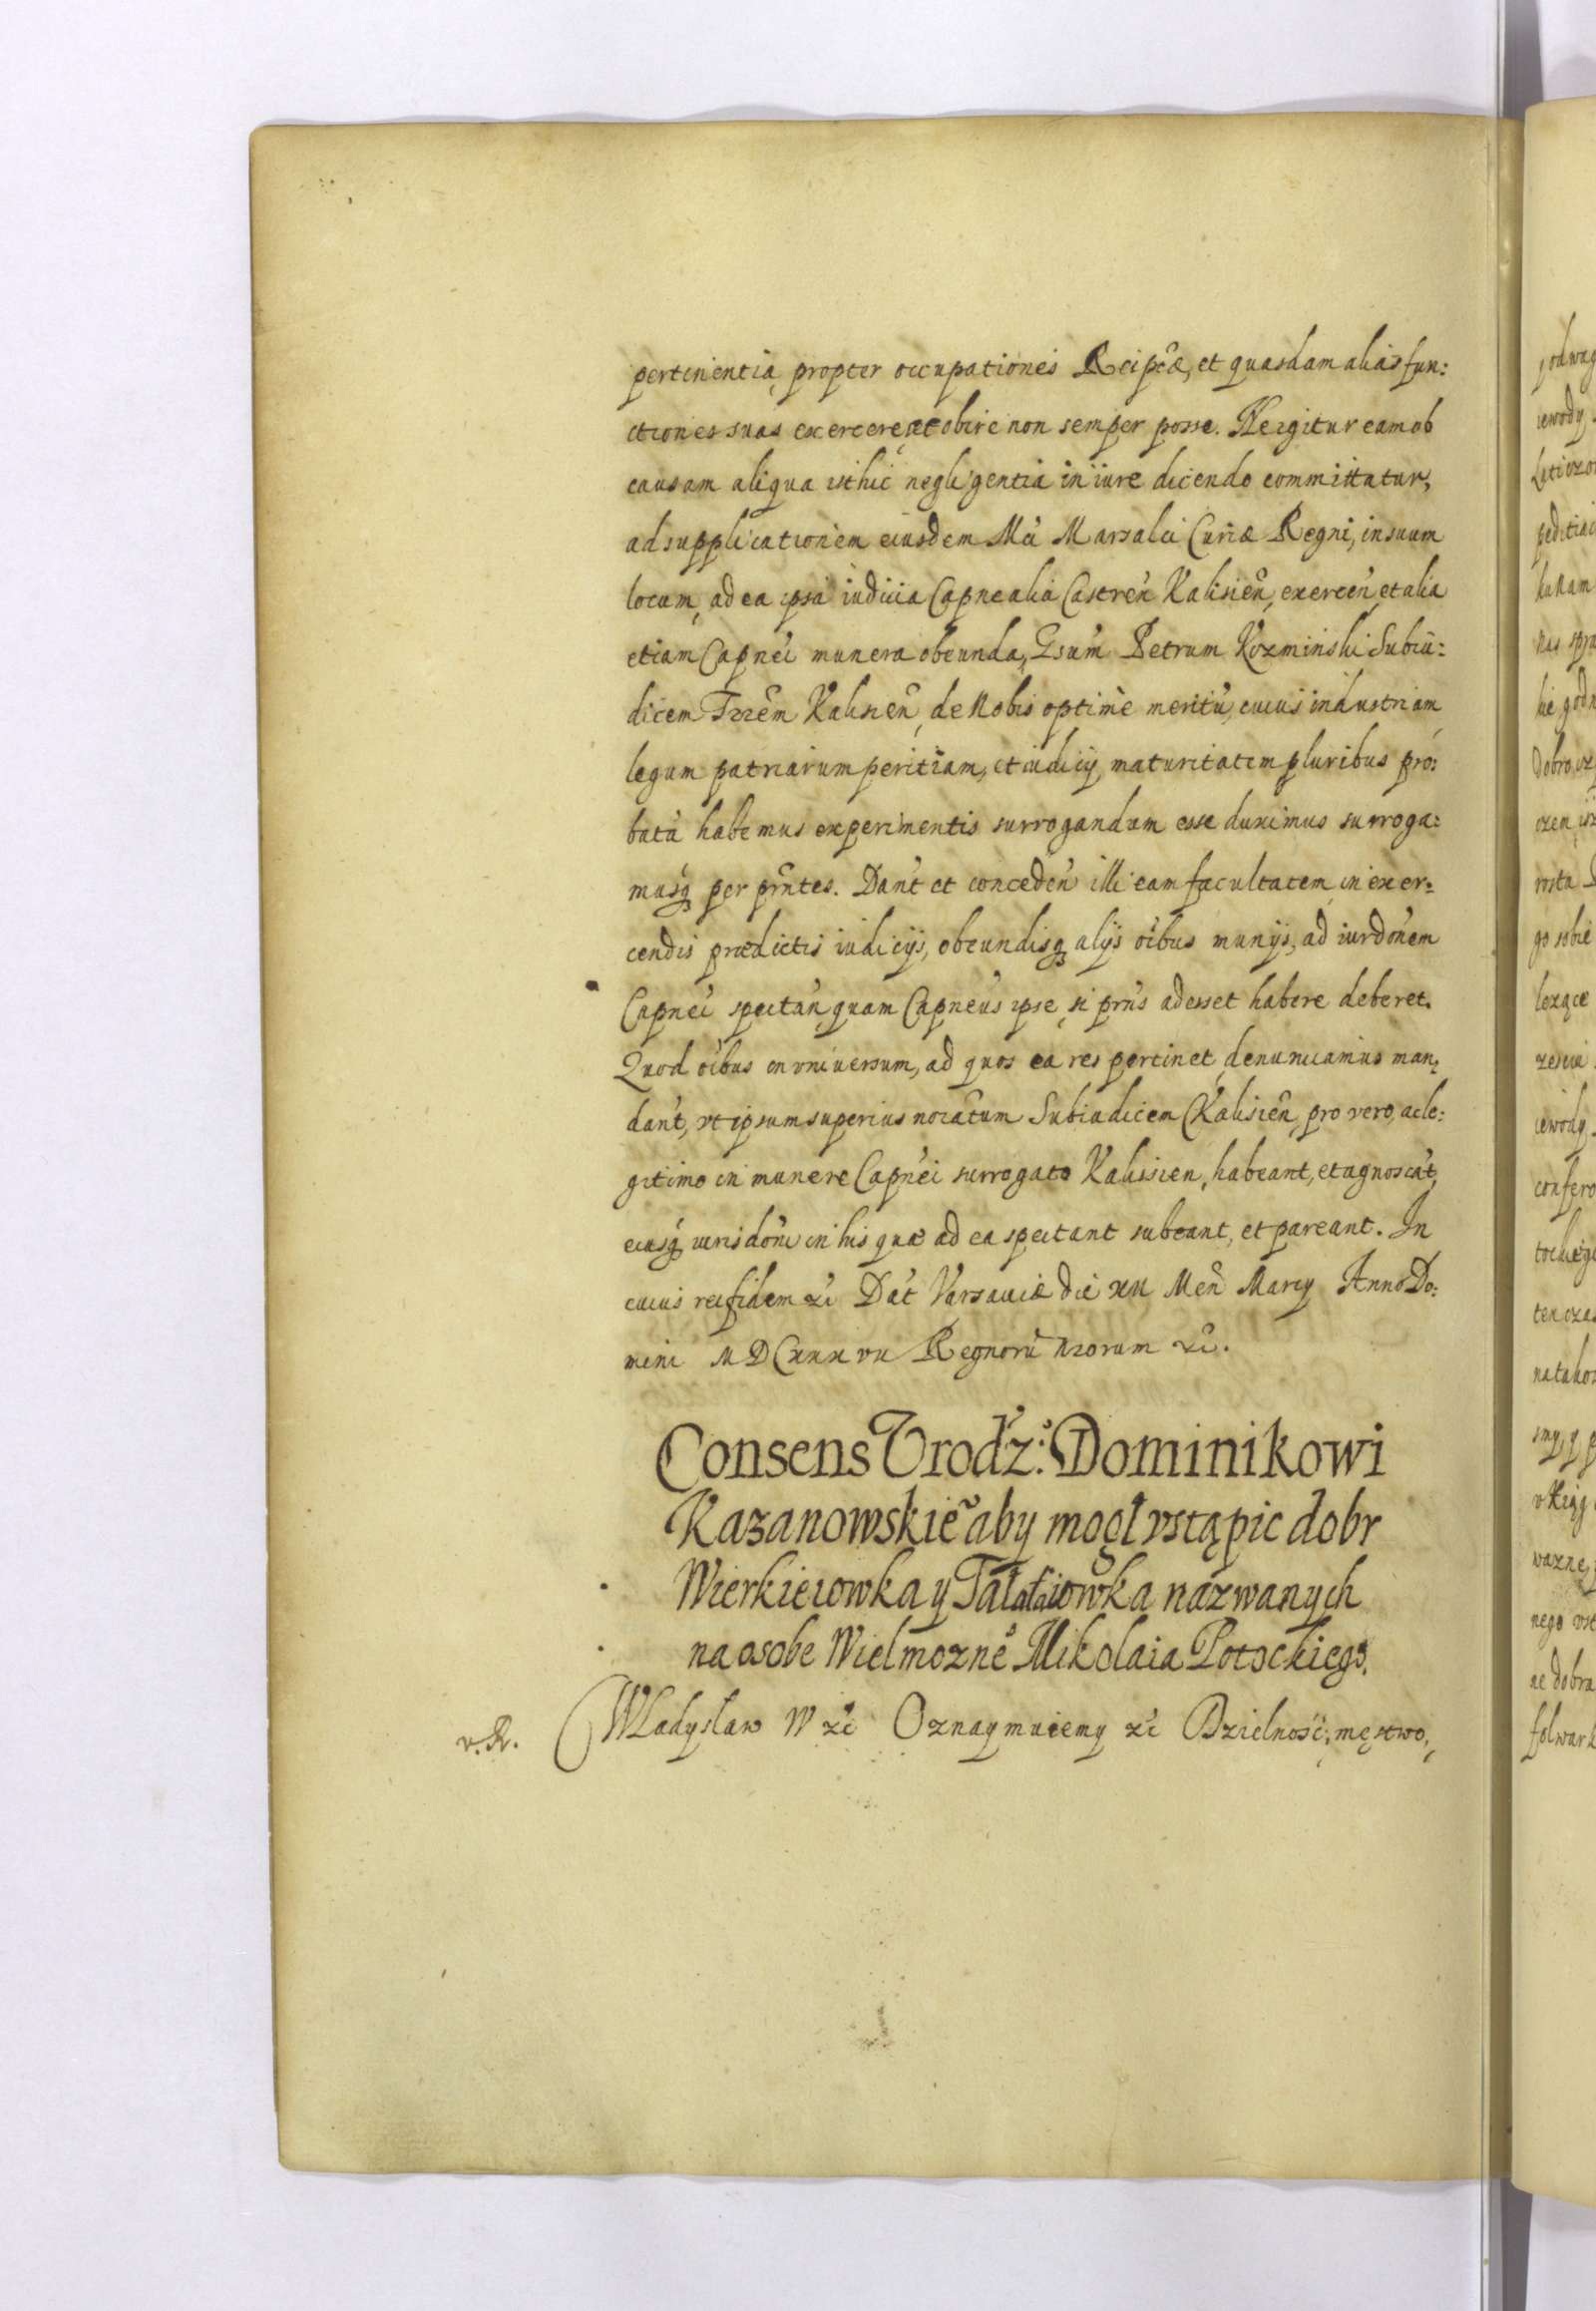 pertinentia, propter occupationes Reipcæ, et quasdam alias fun:
ctiones suas exercere, et obire non semper posse. Ne igitur eam ob
causam aliqua isthic negligentia in iure dicendo committatur,
ad supplicationem eiusdem Mci Marsalci Curiæ Regni, in suum
locum, ad ea ipsa iudicia Capnealia Castren Kalisien, exercen, et alia
etiam Capnei munera obeunda, Gsum Petrum Kozminski Subiu:
dicem Trrem Kalisien, de Nobis optime meritu, cuius industriam
legum patriarum peritiam, et iudicij maturitatem pluribus pro:
bata habemus experimentis surrogandum esse duximus surroga:
musq per prntes. Dant et conceden illi eam facultatem, in exer:
cendis prædictis iudicijs, obeundisq alijs oibus munijs, ad iurdonem
Capnei spectan, quam Capneus ipse, si prns adesset habere deberet.
Quod oibus in vniuersum, ad quos ea res pertinet, denunciamus man:
dant, vt ipsum superius noiatum Subiudicem Kalisien, pro vero, ac le:
gitimo in munere Capnei surrogato Kalissien, habeant, et agnoscat,
eiusq iurisdoni in his quæ ad ea spectant subeant, et pareant. In
cuius rei fidem zc Dat Varsauiæ die XII Men Marcy Anno Do:
mini MDCXXXVII Regnoru nrorum zc.
Consens Vrodz: Dominikowi
Kazanowskie aby mogł vstąpic dobr
Wierkieiowka y Tałałaiowka nazwanych
na osobe Wielmozne Mikolaia Potockiego.
v. R. Wladyslaw W zc Oznaymuiemy zc Dzielność, męstwo,
podwag
iewody
go sobie
iewody
confero
tenczas
wazne,
nego vst
ne dobra
folwark